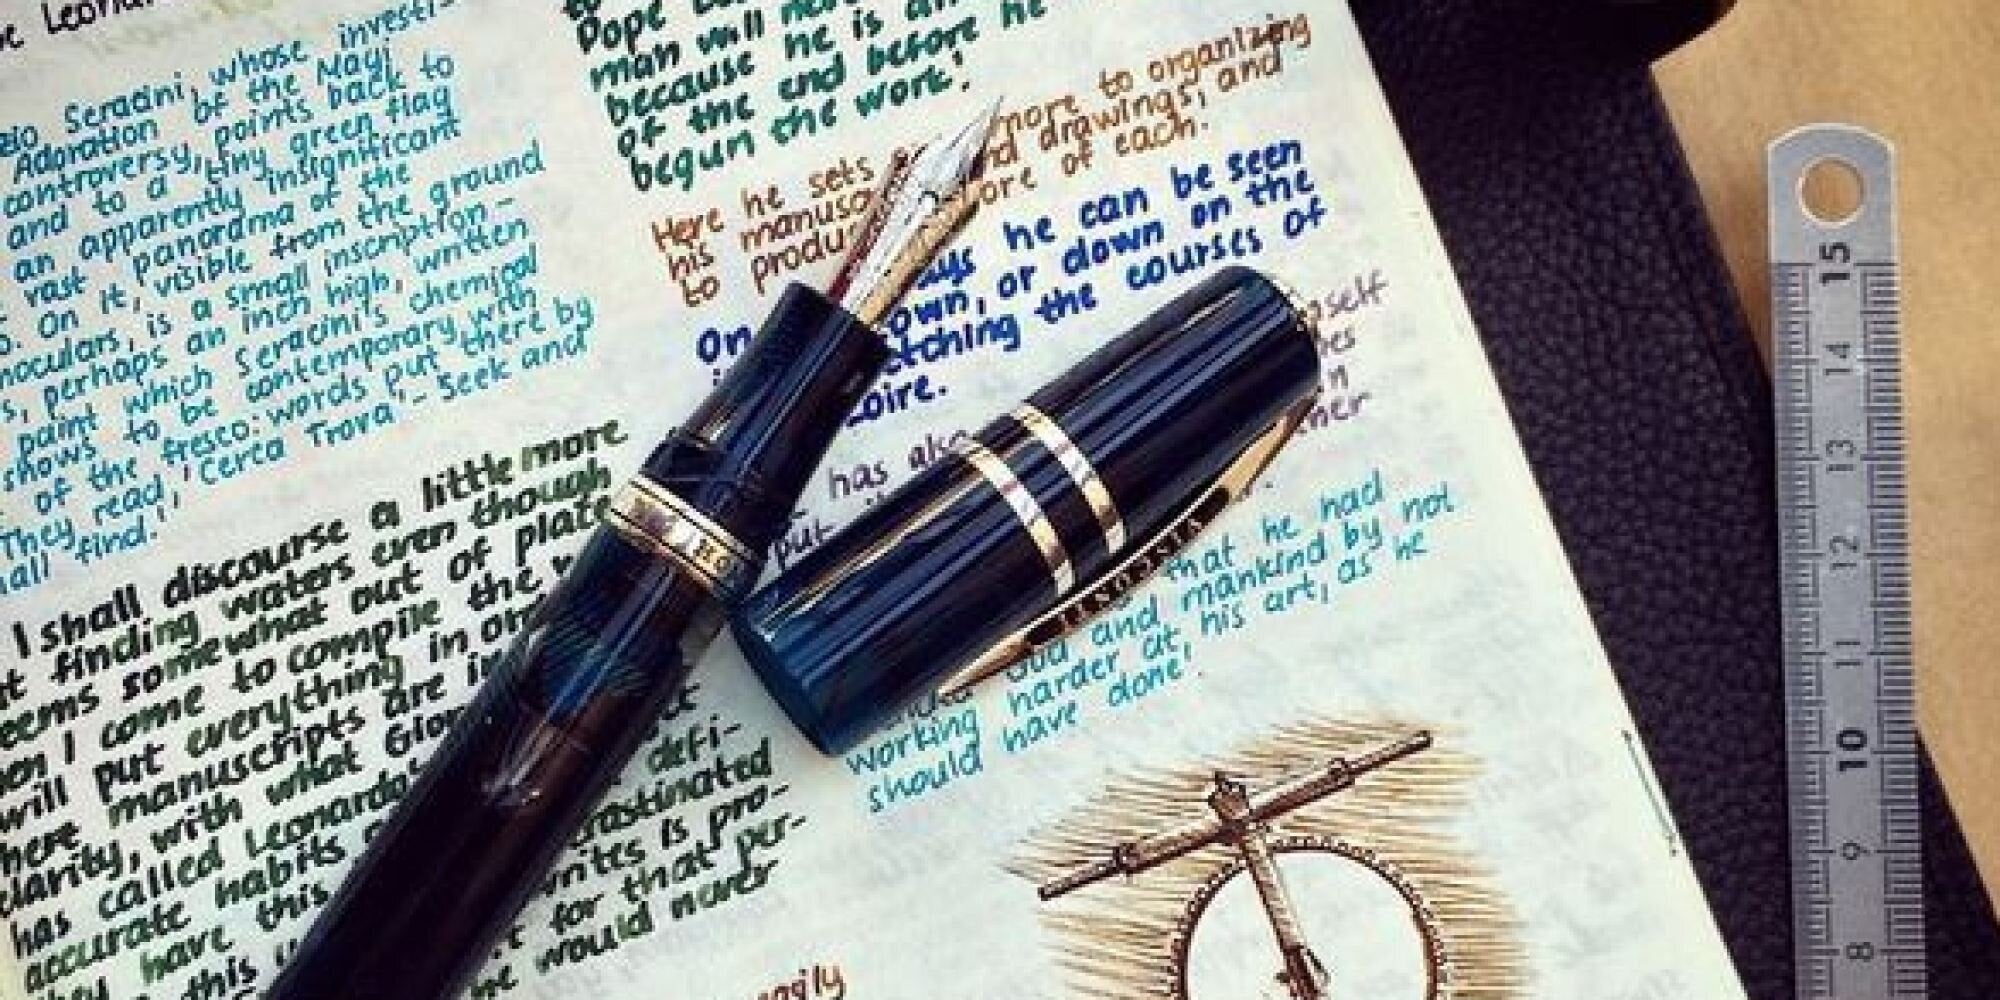 Leonar
zio Seracini, whose investi-
Adoration of the Magi
controversy, points back to
and to a tiny green flag
an apparently insignificant
vast panorama of the
On it, visible from the ground
noculars, is a small inscription-
s, perhaps an inch high, written
paint which Seracini's chemical
shows to be contemporary with
of the fresco: words put there by
They read, 'Cerca Trova' - Seek and
hall find.'
I shall discourse a little more
finding waters even though
eems somewhat out of place
I come to compile the
will put everything in or
here manuscripts are in
clarity, with what Gior
has called Leonardo
accurate habits
they have this
this
defi-
rastinated
writes is pro-
for that per-
would never
Pope
man will never
because he is
of the end before he
begun the work!
more to organizing
Here he sets
his manusc nd drawings, and
to produc ore of each.
On ays he can be seen
own, or down on the
etching the courses of
Loire.
self
has also
put
her
that he had
God and mankind by not
working harder at his art, as he
should have done!
VISCONTI
15
14
13
12
11
10
9
8